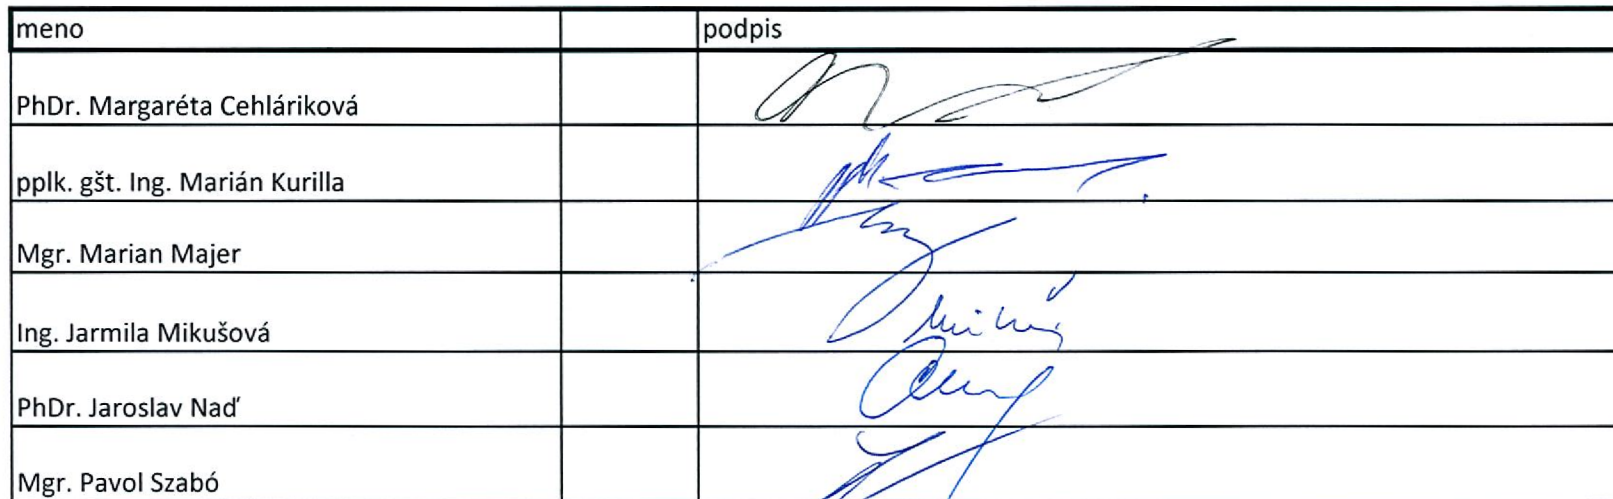 meno podpis
PhDr. Margaréta Cehláriková
pplk. gšt. Ing. Marián Kurilla
Mgr. Marian Majer
Ing. Jarmila Mikušová
PhDr. Jaroslav Naď
Mgr. Pavol Szabó